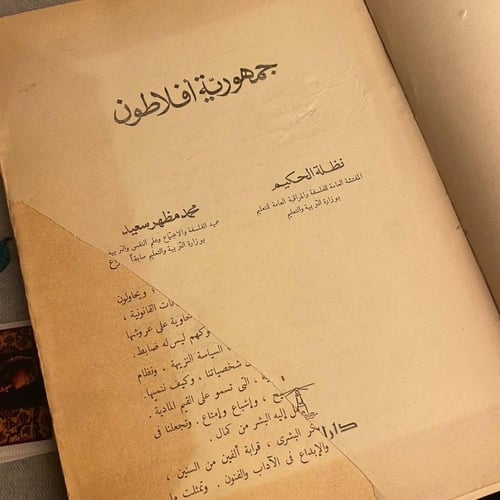 جمهورية أفلاطون
نظلة الحكيم
المفتشة العامة للفلسفة والمراقبة العامة للتعليم
بوزارة التربية والتعليم
محمد مظهر سعيد
عميد الفلسفة والاجتماع وعلم النفس والتربية
بوزارة التربية والتعليم سابقاً
ويحاولون
القانونية ،
خاوية على عروشها
وكهم ليس له ضابط .
السياسة النزيهة ، ونظام
شخصياتنا ، وكيف ننميها .
، التى تسمو على القيم المادية .
، وإشباع وإمتاع . وتجعلنا فى
إليه البشر من كمال .
دار
البشرى ، قرابة ألفين من السنين ،
والإبداع فى الآداب والفنون . وتمثلت